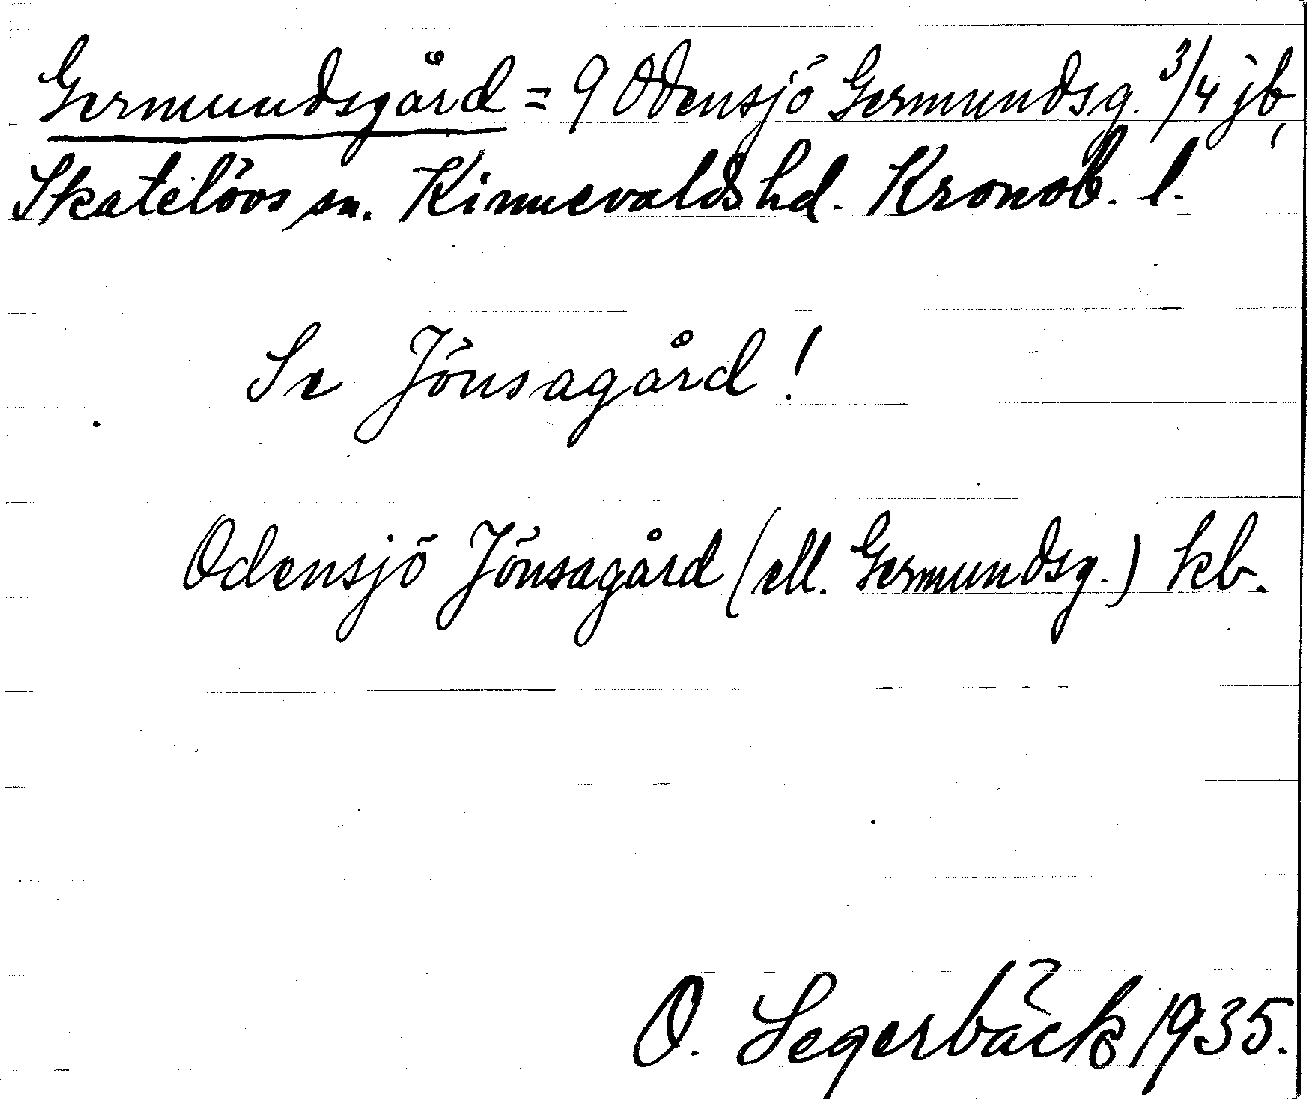 Germundsgård = 9 Odensjö Germundsg. 3/4 jb,
Skatelövs sn. Kinnevalds hd. Kronob. l.
Se Jönsagård!
Odensjö Jönsagård (ell. Germundsg.) kb.
O. Segerbäck 1935.